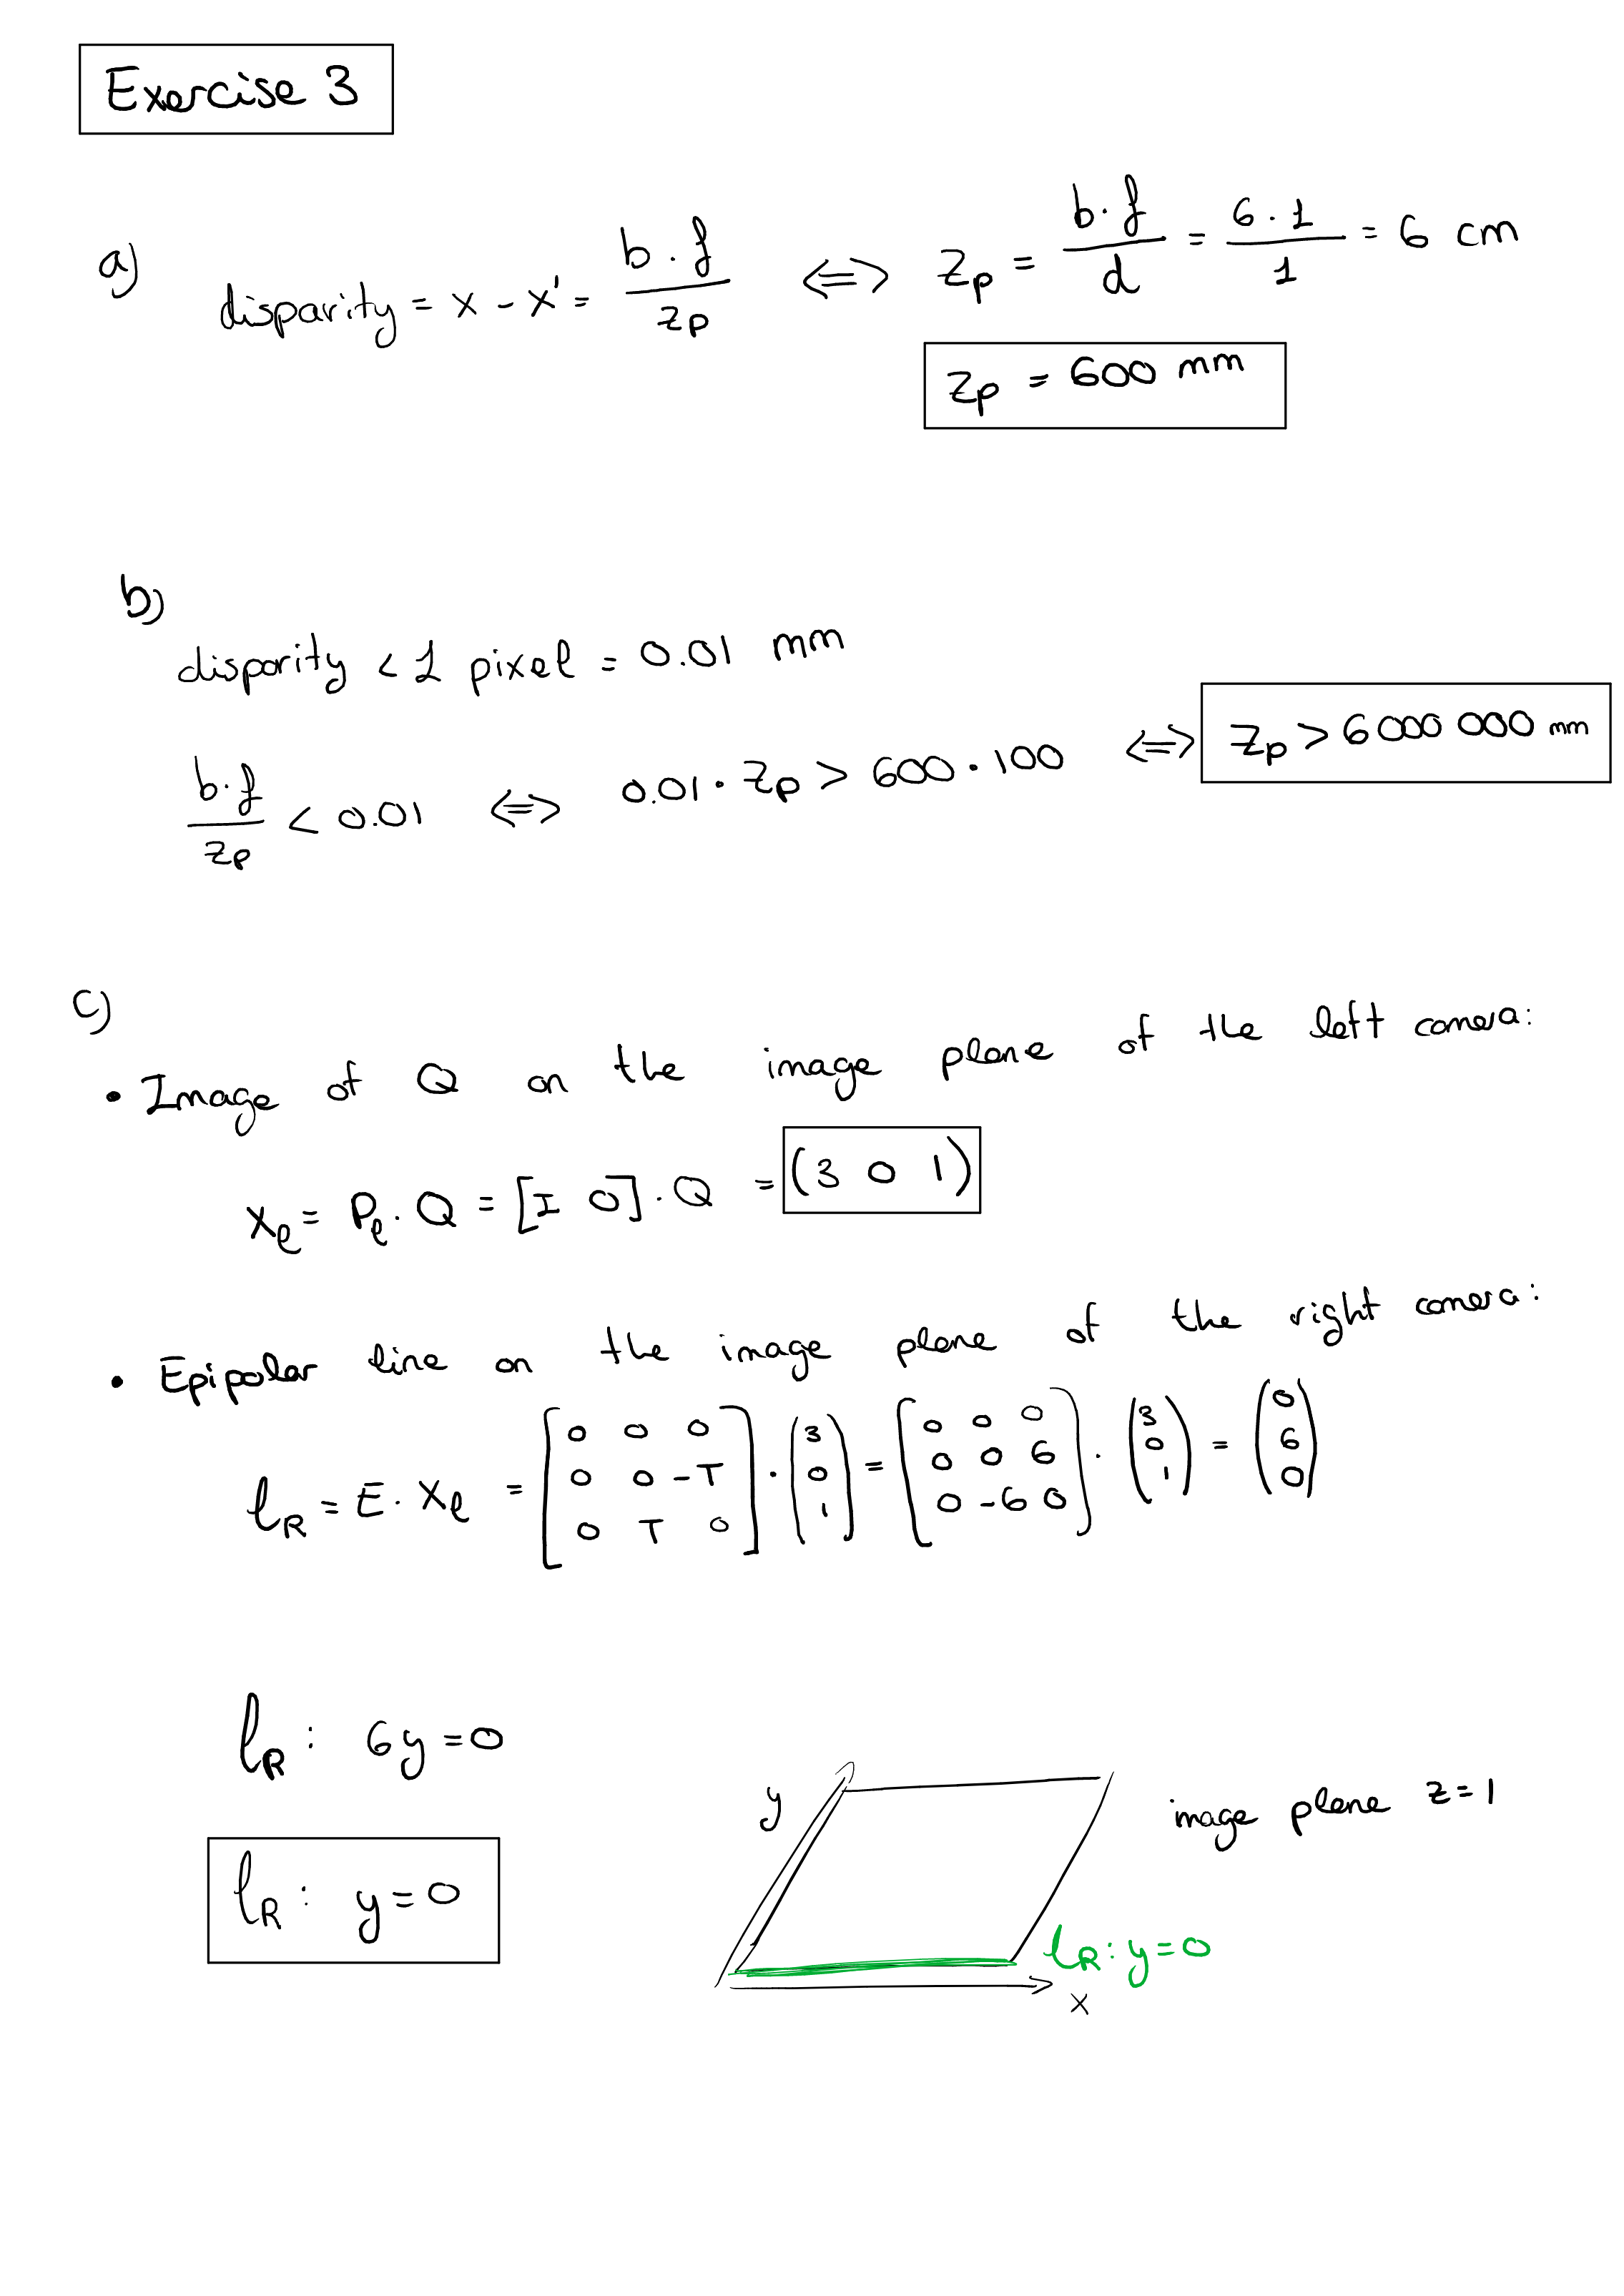 Exercise 3
a) disparity = x - x' = b·f / z_p ⟺ z_p = b·f / d = 6·1 / 1 = 6 cm
z_p = 600 mm
b)
disparity < 1 pixel = 0.01 mm
b·f / z_p < 0.01 ⟺ 0.01 · z_p > 600 · 100 ⟺ z_p > 6 000 000 mm
c)
• Image of Q on the image plane of the left camera:
x_l = P_l · Q = [I 0] · Q = (3 0 1)
• Epipolar line on the image plane of the right camera:
l_R = E · x_l = [0 0 0; 0 0 -T; 0 T 0] · (3; 0; 1) = [0 0 0; 0 0 6; 0 -6 0] · (3; 0; 1) = (0; 6; 0)
l_R : 6y = 0
y
image plane z = 1
l_R : y = 0
l_R : y = 0
x